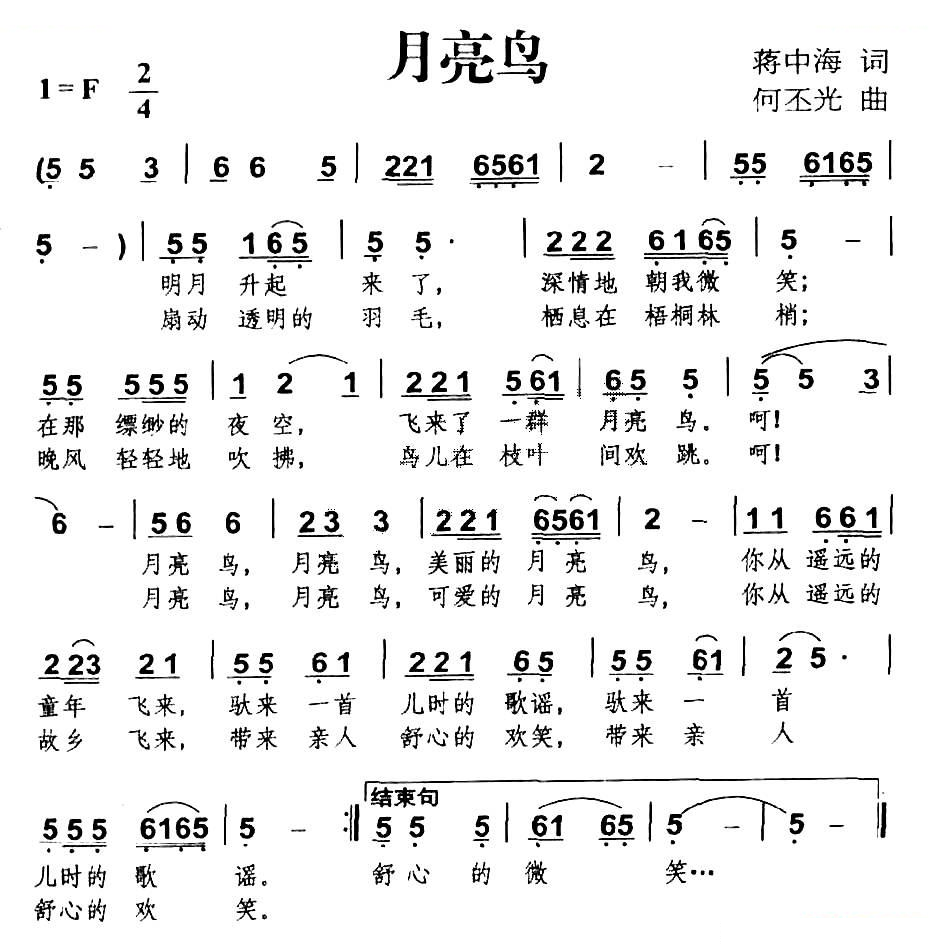 月亮鸟
1=F 2/4
蒋中海 词
何丕光 曲
(5 5 3 | 6 6 5 | 221 6561 | 2 – | 55 6165 |
5 – ) | 55 165 | 5 5· | 222 6165 | 5 – |
明月 升起 来了, 深情地 朝我微 笑;
扇动 透明的 羽毛, 栖息在 梧桐林 梢;
55 555 | 1 2 1 | 221 561 | 65 5 | 5 5 3 |
在那 缥缈的 夜空, 飞来了 一群 月亮鸟。呵!
晚风 轻轻地 吹拂, 鸟儿在 枝叶 间欢跳。呵!
6 – | 56 6 | 23 3 | 221 6561 | 2 – | 11 661 |
月亮 鸟, 月亮 鸟, 美丽的 月亮 鸟, 你从 遥远的
月亮 鸟, 月亮 鸟, 可爱的 月亮 鸟, 你从 遥远的
223 21 | 55 61 | 221 65 | 55 61 | 2 5· |
童年 飞来, 驮来 一首 儿时的 歌谣, 驮来 一 首
故乡 飞来, 带来 亲人 舒心的 欢笑, 带来 亲 人
结束句
555 6165 | 5 – :| 5 5 5 | 61 65 | 5 – | 5 – ‖
儿时的 歌 谣。 舒心 的 微 笑…
舒心的 欢 笑。